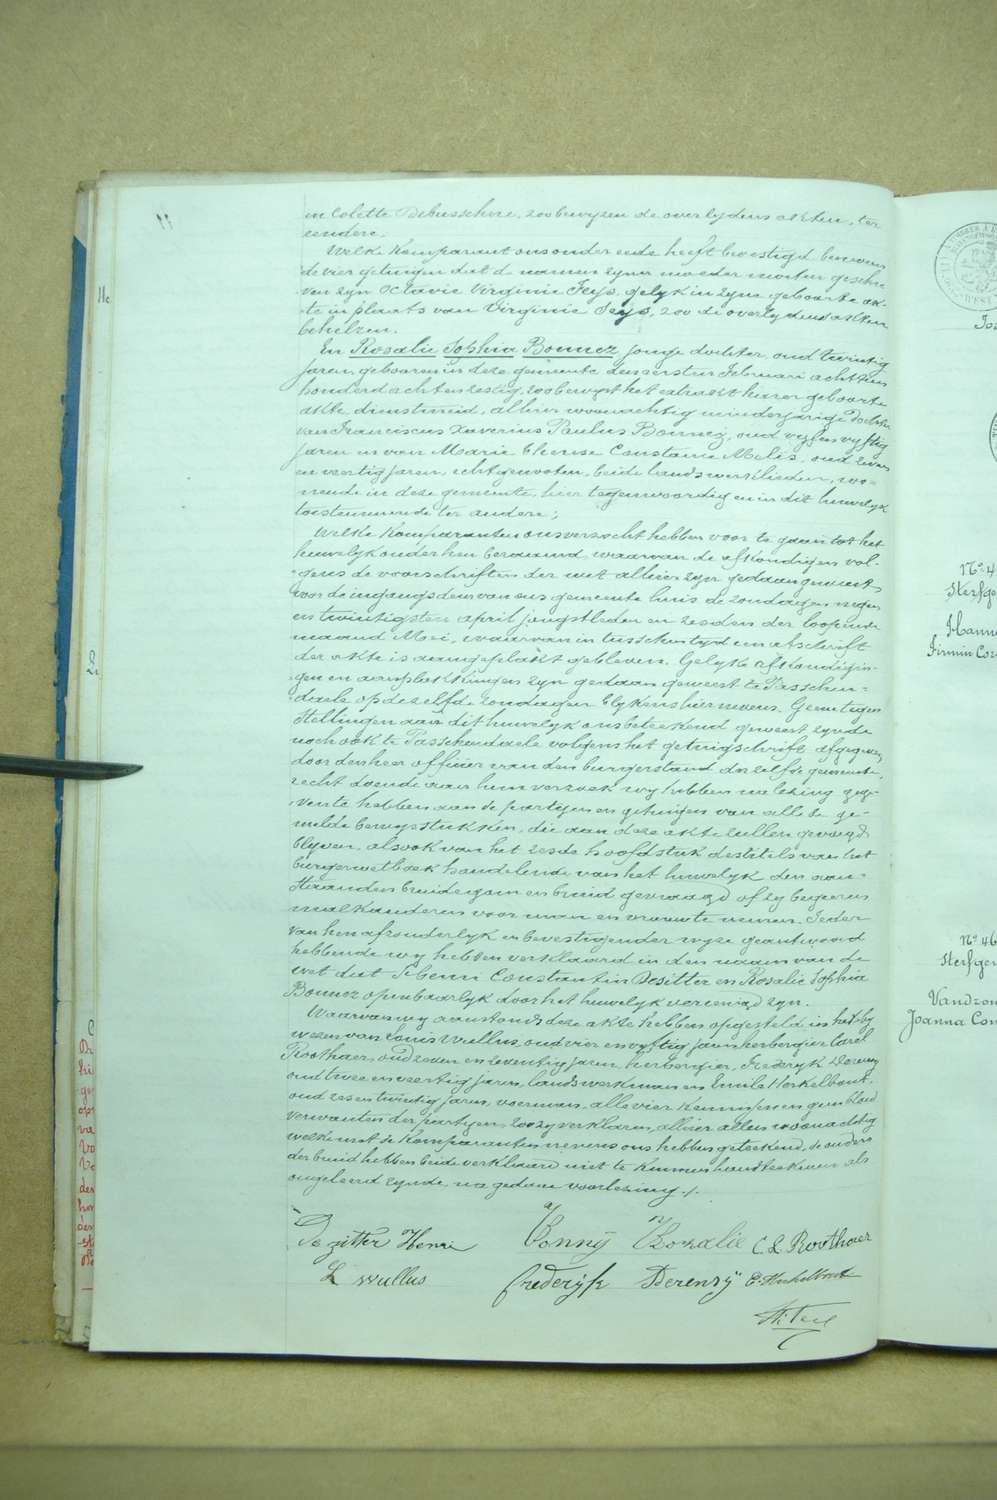 en Colette Debusschere, zoo bewyzen de overlydens akten, ter
eendere;
Welke Komparant ons onder eede heeft bevestigd benevens
de vier getuigen dat de namen zyner moeder moeten geschre
ven zyn Octavie Virginie Feys, gelyk in zyne geboorte ak-
te in plaats van Virginie Feys, zoo de overlydensakten
behelzen.
En Rosalie Sophia Bonnez jonge dochter, oud twintig
jaren, geboren in deze gemeente den eersten februari achttien
honderd acht en zestig, zoo bewyst het extrakt harer geboorte
akte dienstmeid, alhier woonachtig minderjarige dochter
van Franciscus Xaverius Paulus Bonnez, oud vyf en vyftig
jaren en van Marie Therese Constancie Melis, oud zeven
en veertig jaren, echtgenooten, beide landswerklieden, wo-
nende in deze gemeente, hier tegenwoordig en in dit huwelyk
toestemmende ter andere;
Welke Komparanten ons verzocht hebben voor te gaan tot het
huwelyk onder hen beraamd, waarvan de afkondigen vol-
gens de voorschriften der wet alhier zyn gedaan geweest,
voor de ingangsdeur van ons gemeente huis de zondagen negen
en twintigsten april jongstleden en zesden der loopende
maand Mei, waarvan in tusschentyd een afschrift
der akte is aangeplakt gebleven. Gelyke afkondigin-
gen en aanplakkingen zyn gedaan geweest te Passchen-
daele op de zelfde zondagen blykens hiernevens. Geen tegen
stellingen aan dit huwelyk ons beteekend geweest zynde
noch ook te Passchendaele volgens het getuigschrift afgegeven
door den heer officier van den burgerstand der zelfde gemeente,
recht doende aan hun verzoek wy hebben na lezing gege-
ven te hebben aan de partyen en getuigen van alle de ge-
melde bewysstukken, die aan deze akte zullen gevoegd
blyven, alsook van het zesde hoofdstuk des titels van het
burgerwetboek handelende van het huwelyk den aan-
staanden bruidegom en bruid gevraagd of zy begeeren
malkanderen voor man en vrouw te nemen. Ieder
van hen afzonderlyk en bevestigender wyze geantwoord
hebbende wy hebben verklaard in den naam van de
wet dat Henri Constantin Desitter en Rosalie Sophia
Bonnez openbaarlyk door het huwelyk vereenigd zyn.
Waarvan wy aanstonds deze akte hebben opgesteld in het by
wezen van Louis Wullus, oud vier en vyftig jaren herbergier Carel
Roothaer, oud zeven en zeventig jaren, herbergier, Frederyk Derensy
oud twee en veertig jaren, landswerkman en Emile Herkelbout,
oud zes en twintig jaren, voerman, alle vier kennissen en geen bloed
verwanten der partyen, zoo zy verklaren, alhier allen woonachtig
welke met de Komparanten nevens ons hebben geteekend, de ouders
der bruid hebben beide verklaard niet te kunnen handteekenen als
ongeleerd zynde, na gedane voorlezing ./.
De zitter Henri Bonny Rozalie C L Roothaer
L Wullus frederyk Derensy E Herkelbout
11e
N° 4
Sterfge
N° 46
Sterfge
Vandro
Joanna Con
Firmin Cor